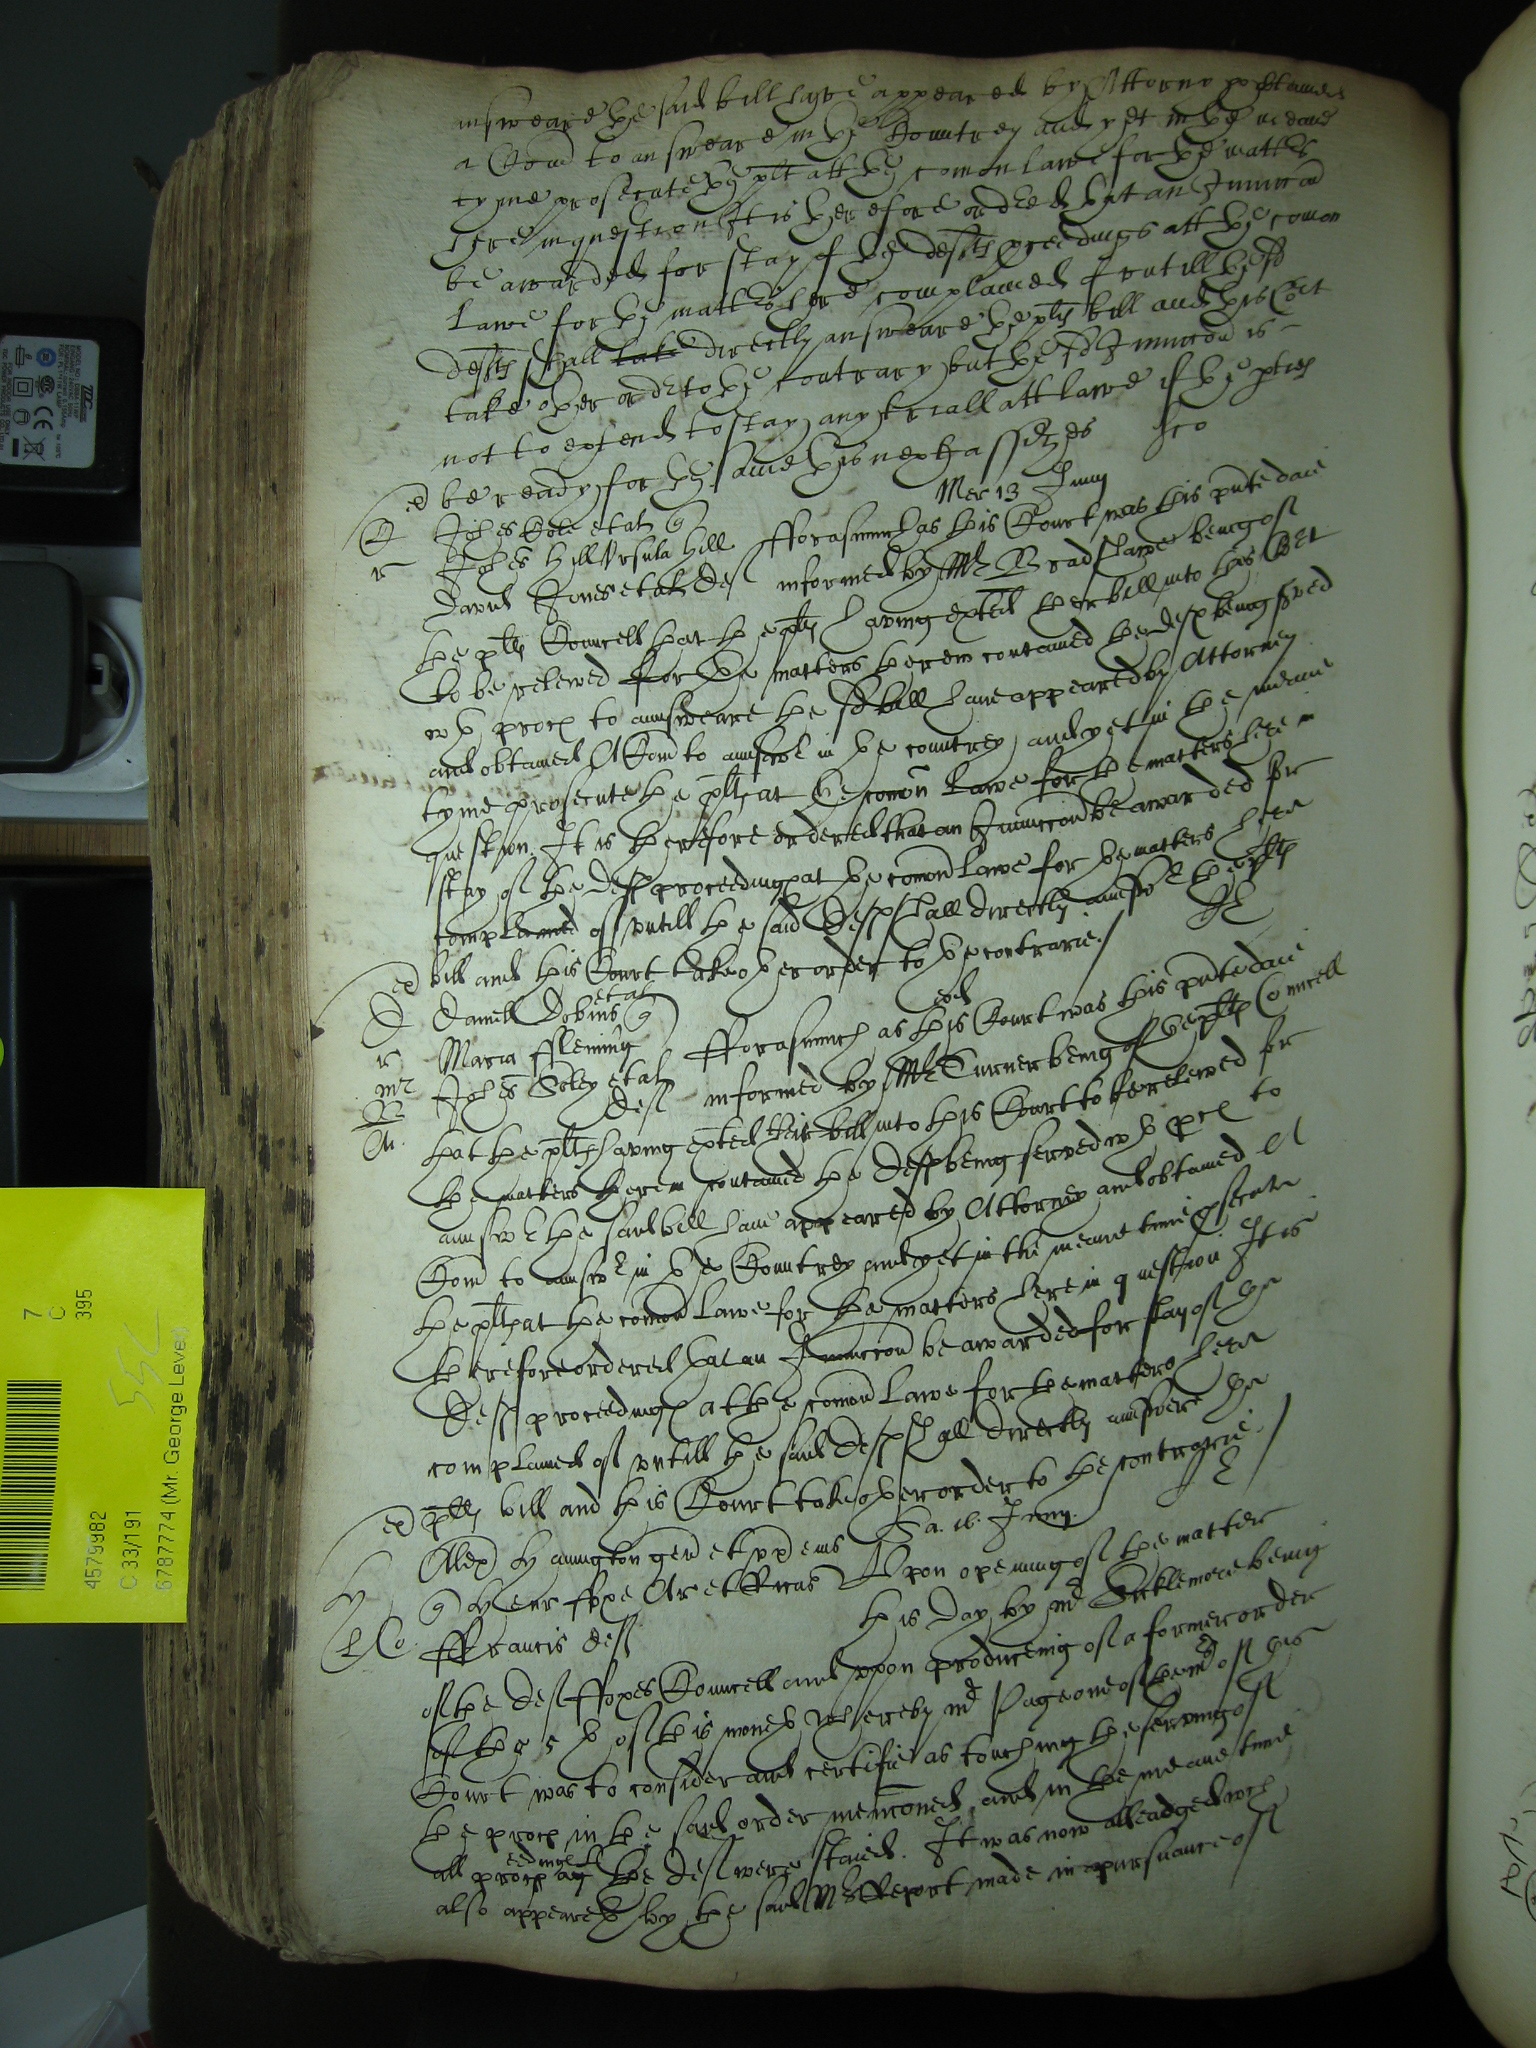 answeare the said bill have appeared by Attorny & obtained
a Com̃ to answeare in the Countrey and yet in the meane
tyme prosecute the plt att the comon lawe for the matters
here in question It is therefore ordered that an Iniuncc̃on
be awarded for stay of the defts pceedings att the comon
lawe for the matters here complained of untill the sd
defts shall take directly answeare the plts bill and this Cort
take other order to the contrary but the sd Iniuncc̃on is
not to extend to stay any tryall att lawe if the pties
be ready for the same this next assizes
Mer 13 Iuny
Iohes Cole et al q
Iohes Hill Vrsula Hill
David Iones et al def
fforasmuch as this Court was this pnte daie
informed by Mr Bradshawe being of
the plts Councell that the plts having exhited their bill into this Cort
to be releived for the matters therein contained the defts being served
wth proces to aunsweare the sd bill have appeared by Attorney
and obtained A Com̃ to aunswer in the countrey and yet in the meane
tyme prosecute the plts at the comon Lawe for the matters here in
question. It is therefore ordered that an Iniuncc̃on be awarded for
stay of the defts proceedings at the comon Lawe for the matters here
complained of vntill the said defts shall directly aunswer the plts
bill and this Court take other order to the contrarie./
Daniell Dobins et al q
Maria ffleming
Iohes Soley et al
def
eod
fforasmuch as this Court was this pnte daie
informed by Mr Turner being of the plts Councell
that the plts having exhited their bill into this Court to be releived for
the matters therein contained the defts being served wth proces to
aunswer the said bill have appeared by Attorney and obtained A
Com̃ to aunswer in the Countrey and yet in the meane time psecute
the plts at the comon Lawe for the matters here in question It is
therefore ordered that an Iniuncc̃on be awarded for stay of the
defts proceedings at the comon Lawe for the matters here
complained of vntill the said defts shall directly aunswere the
plts bill and this Court take other order to the contrarie./
Ia. Iuny.
Alex Hannington gen et vx eius
q Henr ffoxe Ar et ffras
ffrancis def
Vpon opening of the matter
this day by Mr Sicklemore being
of the def ffoxes Councell and vpon producing of a former order
of the 5th of this moneth whereby Mr Page one of the Mrs of this
Court was to consider and certifie as touching the serving of
the proces in the said order menc̃oned, and in the meane time
all proceedings agt the def were staied. It was now alleadged wch
also appeareth by the said Mrs Report made in pursuance of
7
C
395
55L
4579982
C 33/191
6787774 (Mr. George Leve)